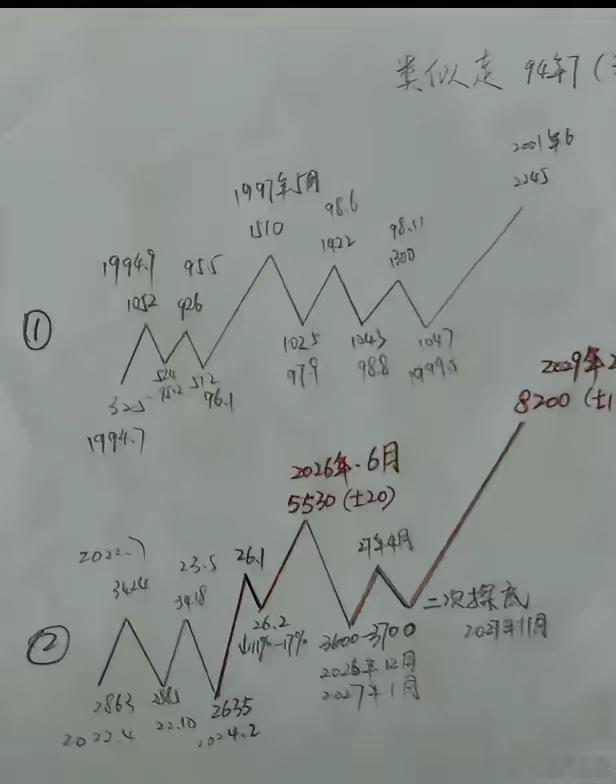 类似走 94年7(
2001年6
2245
1997年5月
1510
98.6
1422
98.11
1300
1994.9
1052
95.5
926
①
325
1994.7
524
95.2
512
96.1
1025
97.9
1043
98.8
1047
1999.5
2029年2
8200(±1
2026年.6月
5530(±20)
27年4月
2022.7
3424
23.5
3418
26.1
②
2863
2022.4
22.10
2635
2024.2
26.2
↓11%-17%
3600-3700
2026年12月
2027年1月
二次探底
2027年11月